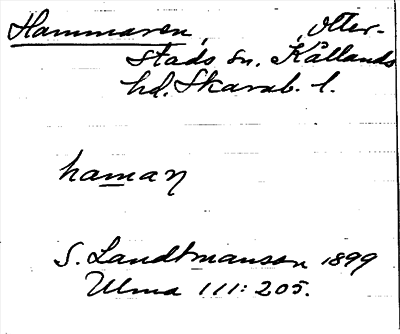 Hammaren, Otter-
stads sn. Kållands
hd. Skarab. l.
haman
S. Landtmanson 1899
Ulma 111: 205.